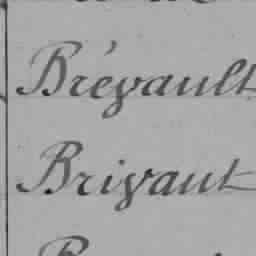 Brégault
Brigaut